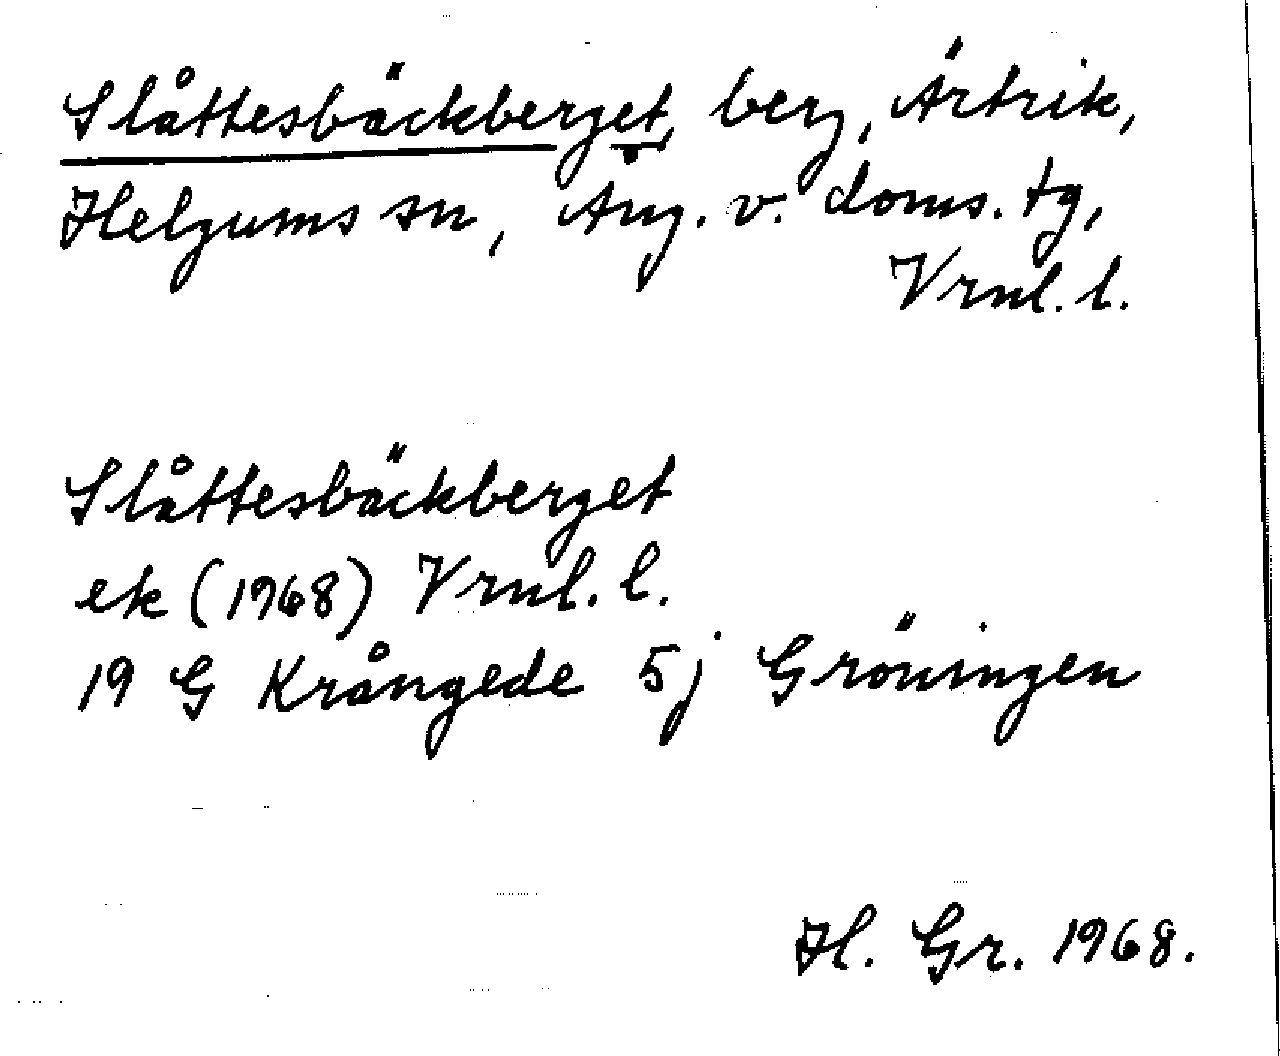 Slåttesbäckberget, berg, Ärtrik,
Helgums sn, Ång. v. doms. tg,
Vrnl. l.
Slåttesbäckberget
ek (1968) Vrnl. l.
19 G Krångede 5j Gröningen
H. Gr. 1968.